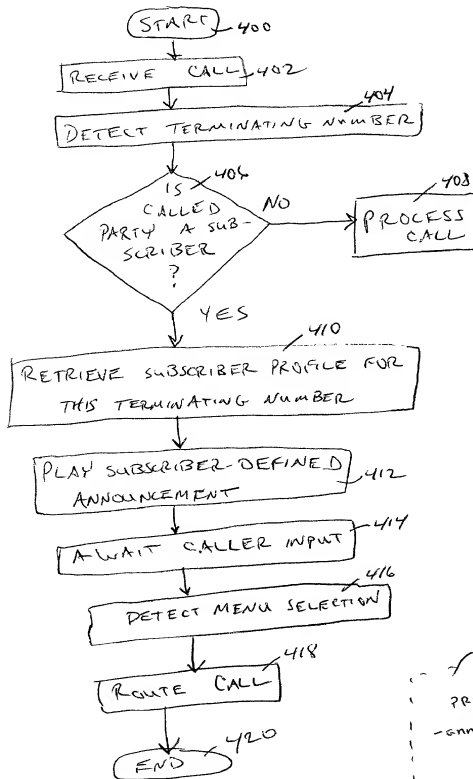 START
400
RECEIVE CALL
402
404
DETECT TERMINATING NUMBER
406
IS
CALLED
PARTY A SUB-
SCRIBER
?
NO
408
PROCESS
CALL
YES
410
RETRIEVE SUBSCRIBER PROFILE FOR
THIS TERMINATING NUMBER
PLAY SUBSCRIBER-DEFINED
ANNOUNCEMENT
412
414
AWAIT CALLER INPUT
416
DETECT MENU SELECTION
418
ROUTE CALL
420
END
PR